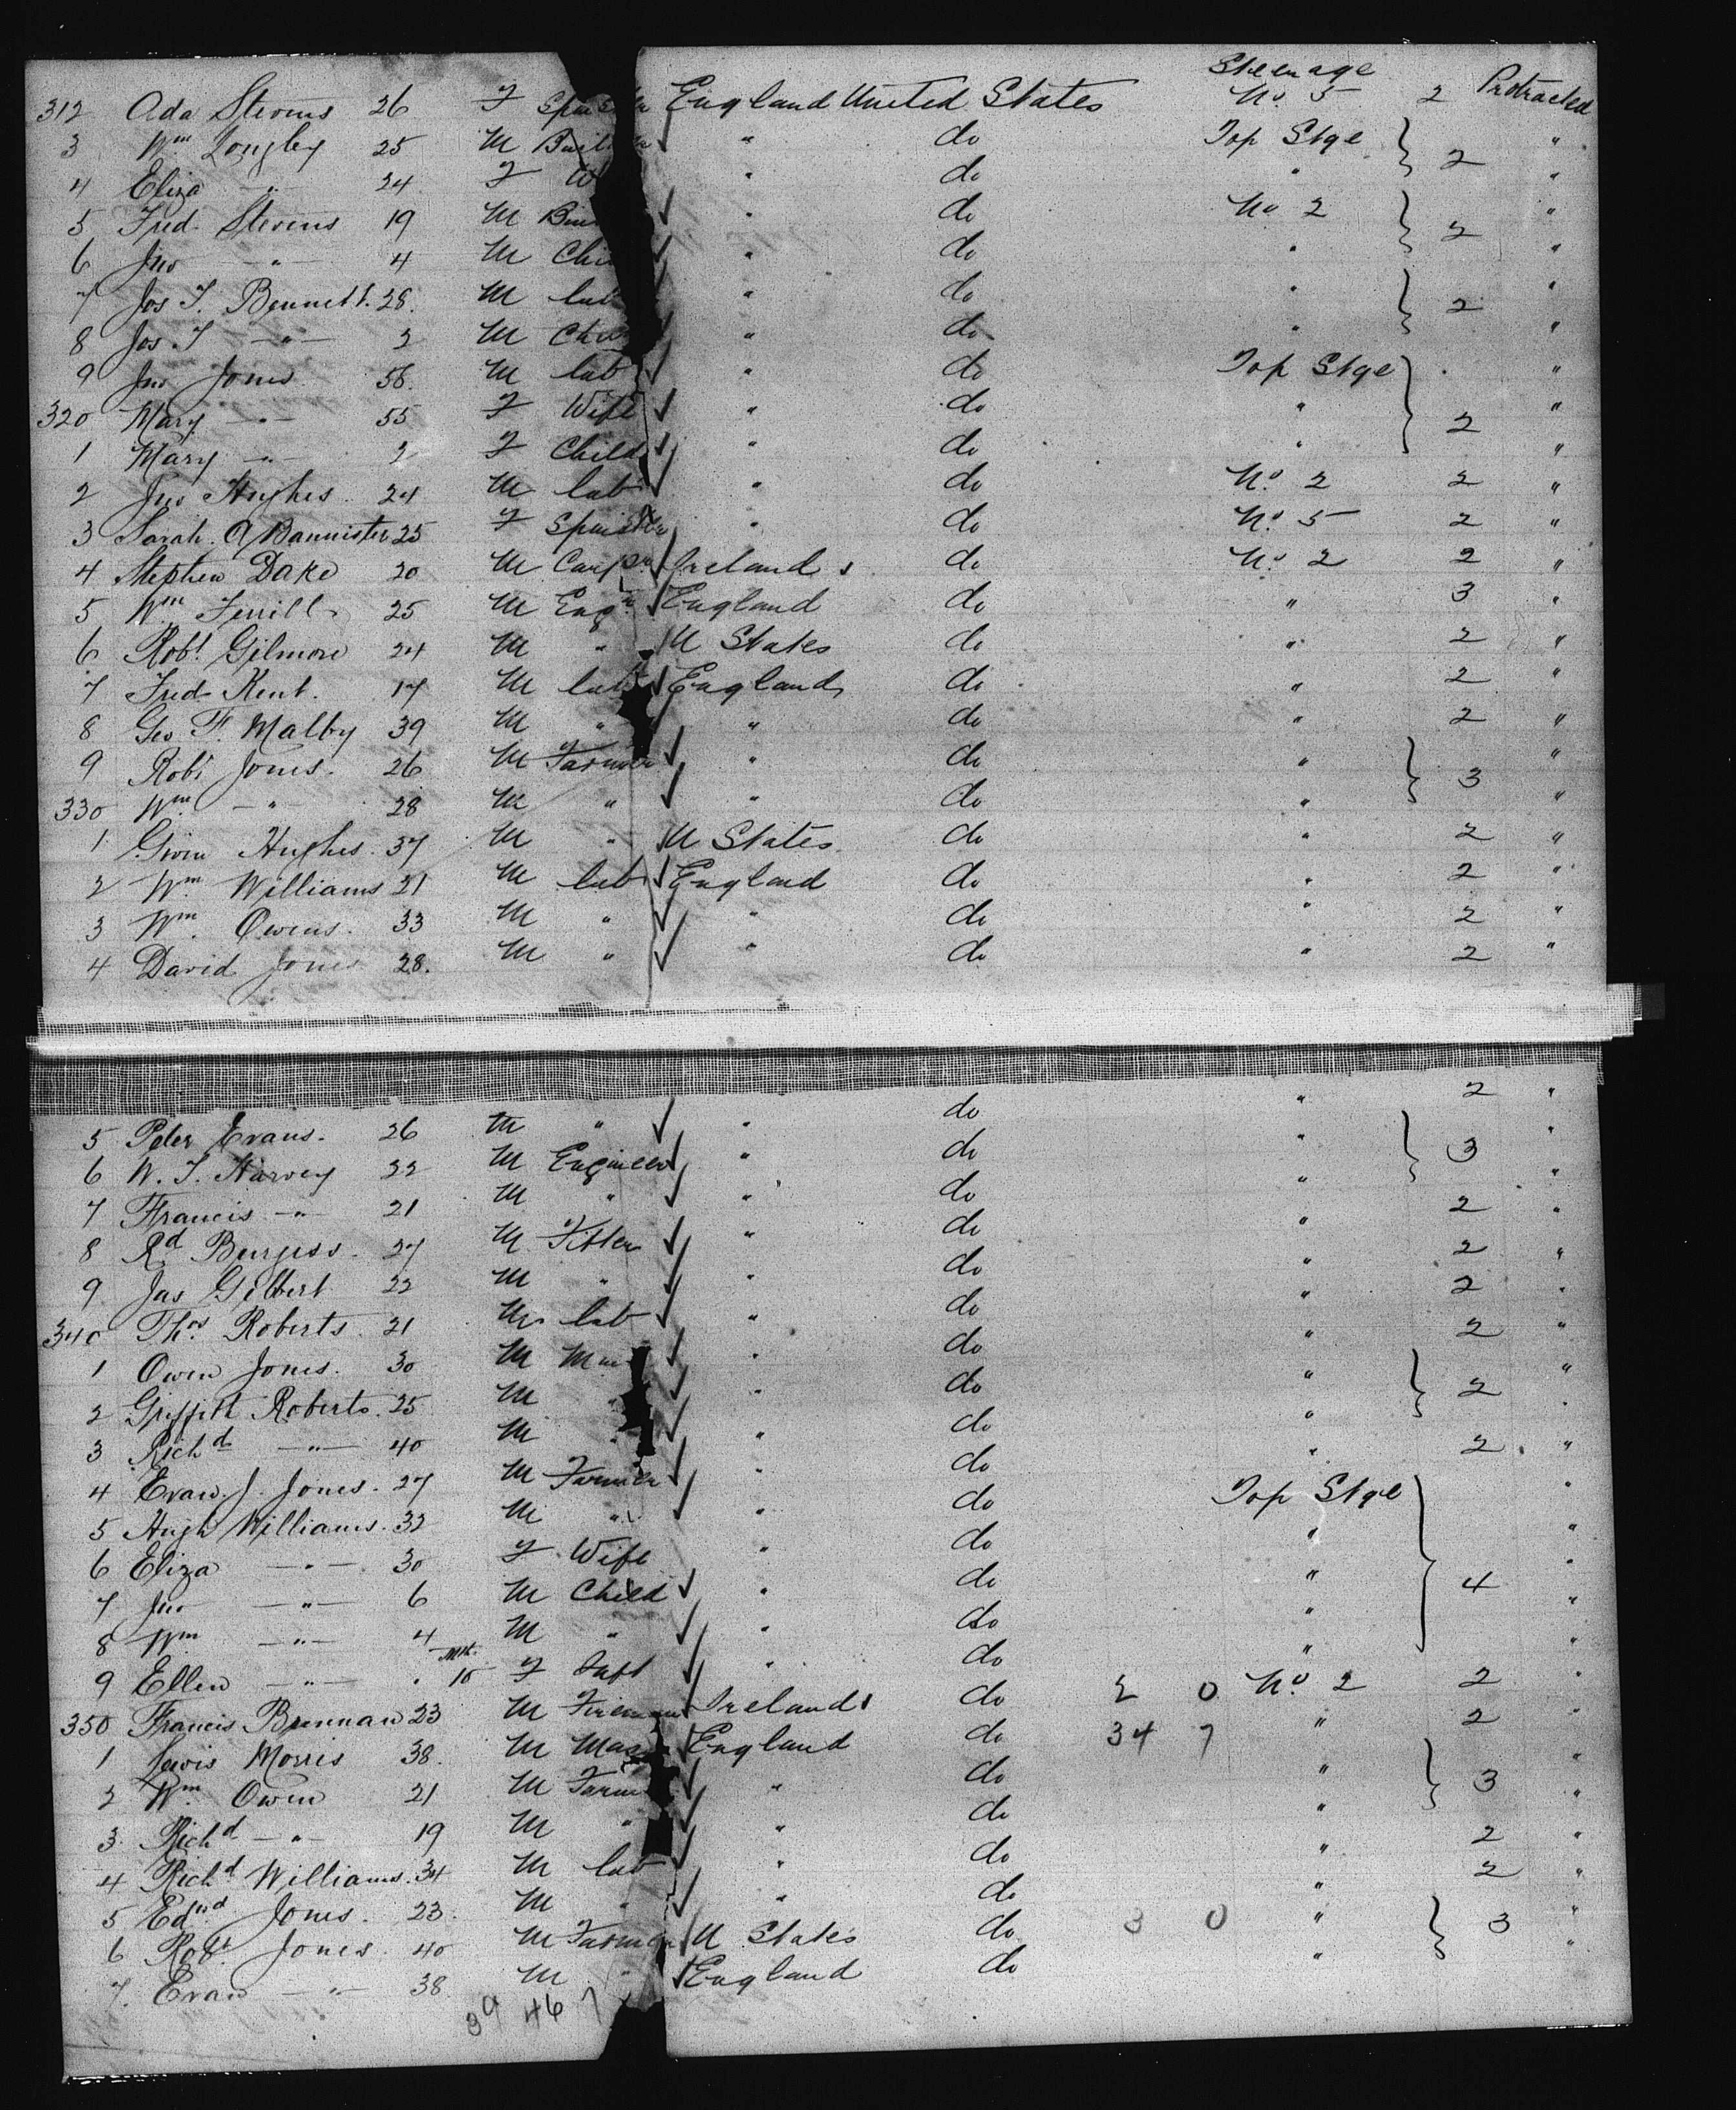 Steerage
312 Ada Stevens 26 F Spinster England United States No. 5 2 Protracted
3 Wm Longley 25 M Builder " do Top Stge } 2 "
4 Eliza —"— 24 F W " do " "
5 Fred Stevens 19 M " do No 2 } 2 "
6 Jno —"— 4 M Chi " do " "
7 Jos T. Bennett. 28. M lab " do " } 2 "
8 Jos. T —"— 2 M Chi " do " "
9 Jno Jones 56. M lab " do Top Stge } "
320 Mary —"— 55 F Wife " do " 2 "
1 Mary —"— 2 F Child " do " "
2 Jno Hughes 24 M lab " do No. 2 2 "
3 Sarah. A Bannister 25 F Spinster " do No. 5 2 "
4 Stephen Dake 20 M Carpr Ireland do No. 2 2 "
5 Wm Ferrill 25 M Engr England do " 3 "
6 Robt. Gilmore 24 M " U States do " 2 "
7 Fred Kent. 17 M lab England do " 2 "
8 Geo F. Malby 39 M " " do " 2 "
9 Robt Jones. 26 M Farmer " do " } 3 "
330 Wm —"— 28 M " " do " "
1 Hughes. 37 M " U States do " 2 "
2 Wm Williams 21 M lab England do " 2 "
3 Wm. Owens. 33 M " " do " 2 "
4 David Jones 28. M " " do " 2 "
5 Peter Evans. 26 M " " do " 2 "
6 W. T. Harvey 22 M Engineer " do " } 3 "
7 Francis —"— 21 M " " do " "
8 Rd Burgess. 27 M Fitter " do " 2 "
9 Jas Gilbert 22 M " " do " 2 "
340 Thos Roberts. 21 M lab " do " 2 "
1 Owen Jones. 30 M " do " 2 "
2 Griffith Roberts. 25 M " do " } 2 "
3 Richd —"— 40 M " " do " "
4 Evan. J. Jones. 27 M Farmer " do " 2. "
5 Hugh Williams. 32 M " " do Top Stge } "
6 Eliza —"— 30 F Wife " do " "
7 Jno —"— 6 M Child " do " 4 "
8 Wm —"— 4 M " " do " "
9 Ellen —"— Mth. 10 F Inft " do " "
350 Francis Brennan 23 M Fireman Ireland do 2 0 No. 2 2 "
1 Lewis Morris 38. M Mas England do 34 7 " 2 "
2 Wm. Owen 21 M Farm " do " } 3 "
3. Richd —"— 19 M " " do " "
4 Richd Williams. 34 M lab " do " 2 "
5 Edwd Jones. 23. M " " do " 2 "
6 Robt. Jones. 40 M Farmer U. States do 3 0 " } 3 "
7. Evan —"— 38. M " England do " "
39 46 7